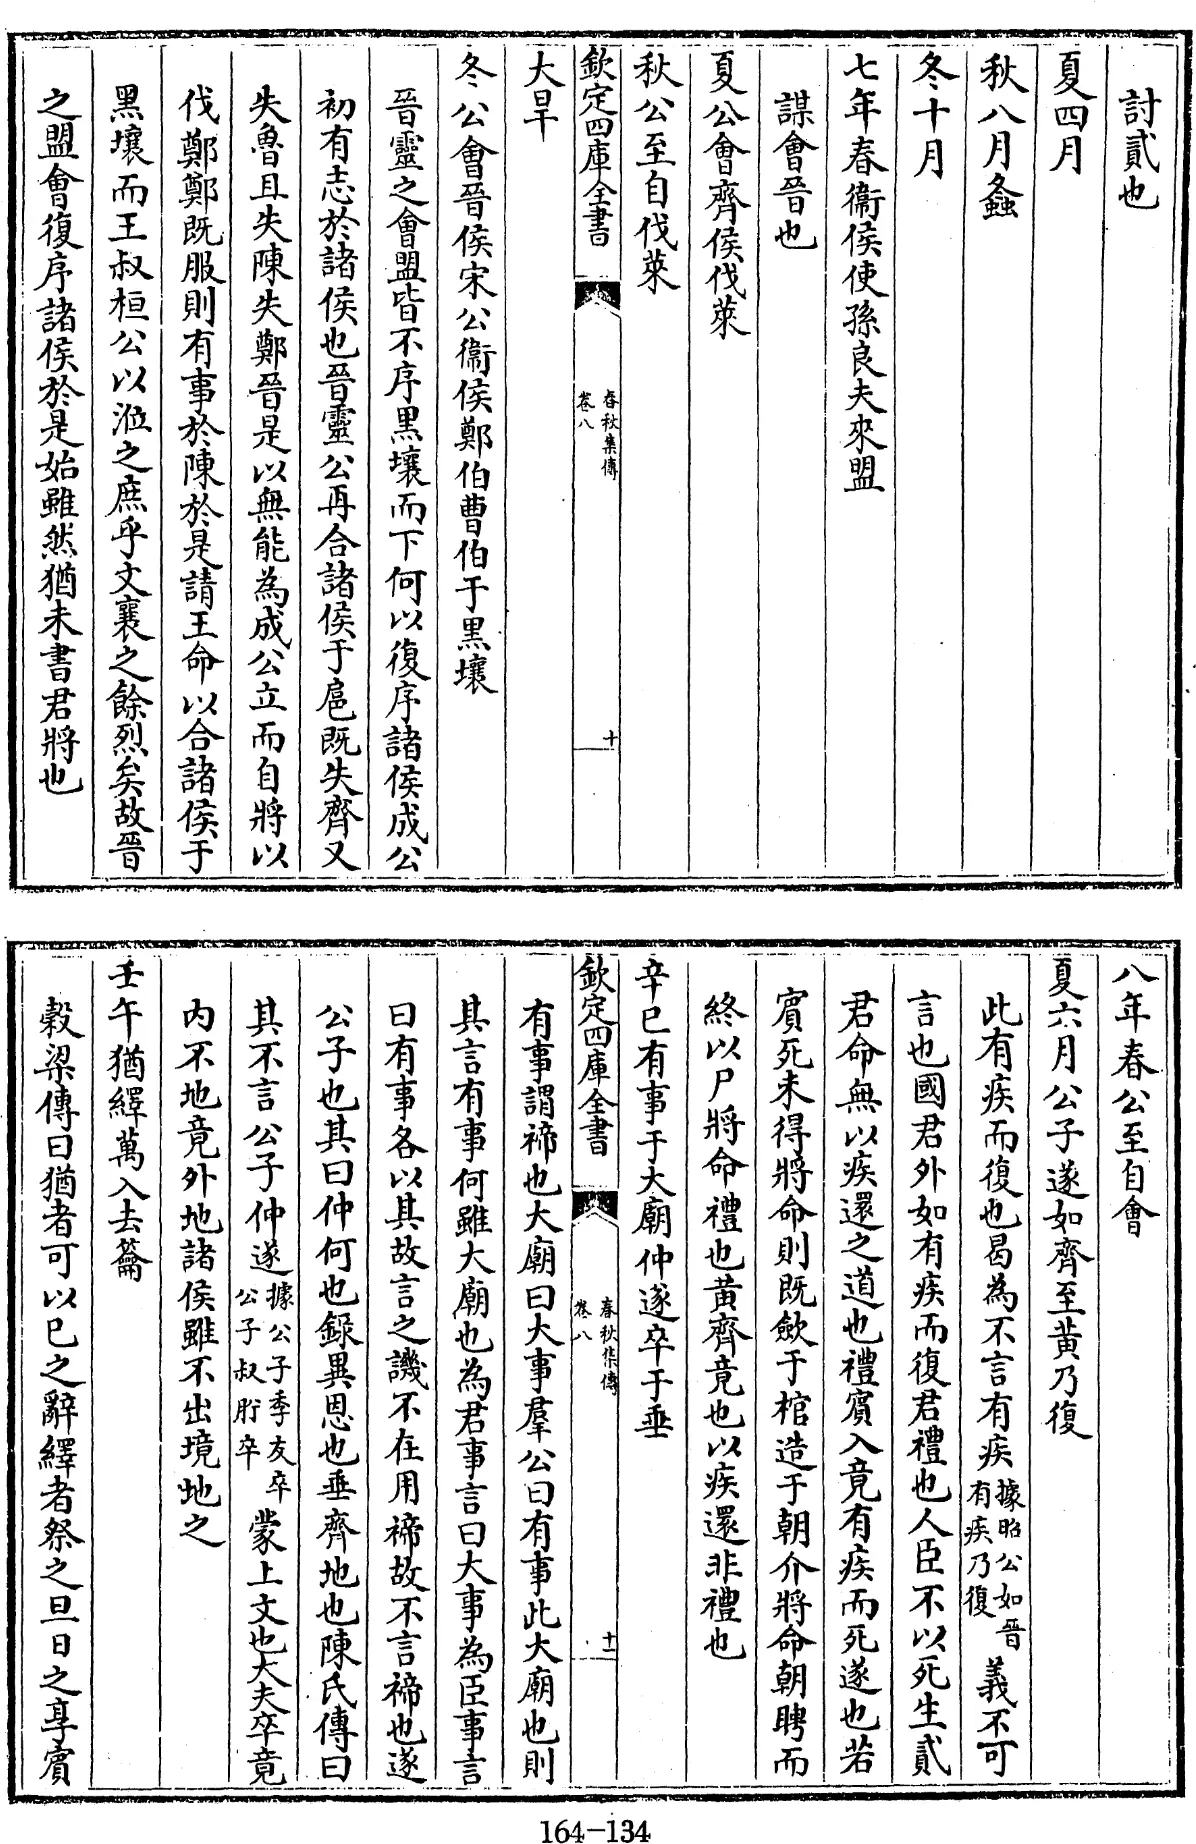 討貳也
夏四月
秋八月螽
冬十月
七年春衞侯使孫良夫來盟
謀會晉也
夏公會齊侯伐萊
秋公至自伐萊
欽定四庫全書
春秋集傳
卷八
十
大旱
冬公會晉侯宋公衞侯鄭伯曹伯于黑壤
晉靈之會盟皆不序黑壤而下何以復序諸侯成公
初有志於諸侯也晉靈公再合諸侯于扈既失齊又
失魯且失陳失鄭晉是以無能為成公立而自將以
伐鄭鄭既服則有事於陳於是請王命以合諸侯于
黑壤而王叔桓公以涖之庶乎文襄之餘烈矣故晉
之盟會復序諸侯於是始雖然猶未書君將也
八年春公至自會
夏六月公子遂如齊至黃乃復
此有疾而復也曷為不言有疾據昭公如晉有疾乃復義不可
言也國君外如有疾而復君禮也人臣不以死生貳
君命無以疾還之道也禮賓入竟有疾而死遂也若
賓死未得將命則既歛于棺造于朝介將命朝聘而
終以尸將命禮也黃齊竟也以疾還非禮也
辛巳有事于大廟仲遂卒于垂
欽定四庫全書
春秋集傳
卷八
十一
有事謂禘也大廟曰大事羣公曰有事此大廟也則
其言有事何雖大廟也為君事言曰大事為臣事言
曰有事各以其故言之譏不在用禘故不言禘也遂
公子也其曰仲何也錄異恩也垂齊地也陳氏傳曰
其不言公子仲遂據公子季友卒公子叔肸卒蒙上文也大夫卒竟
内不地竟外地諸侯雖不出境地之
壬午猶繹萬入去籥
穀梁傳曰猶者可以已之辭繹者祭之旦日之享賓
164-134